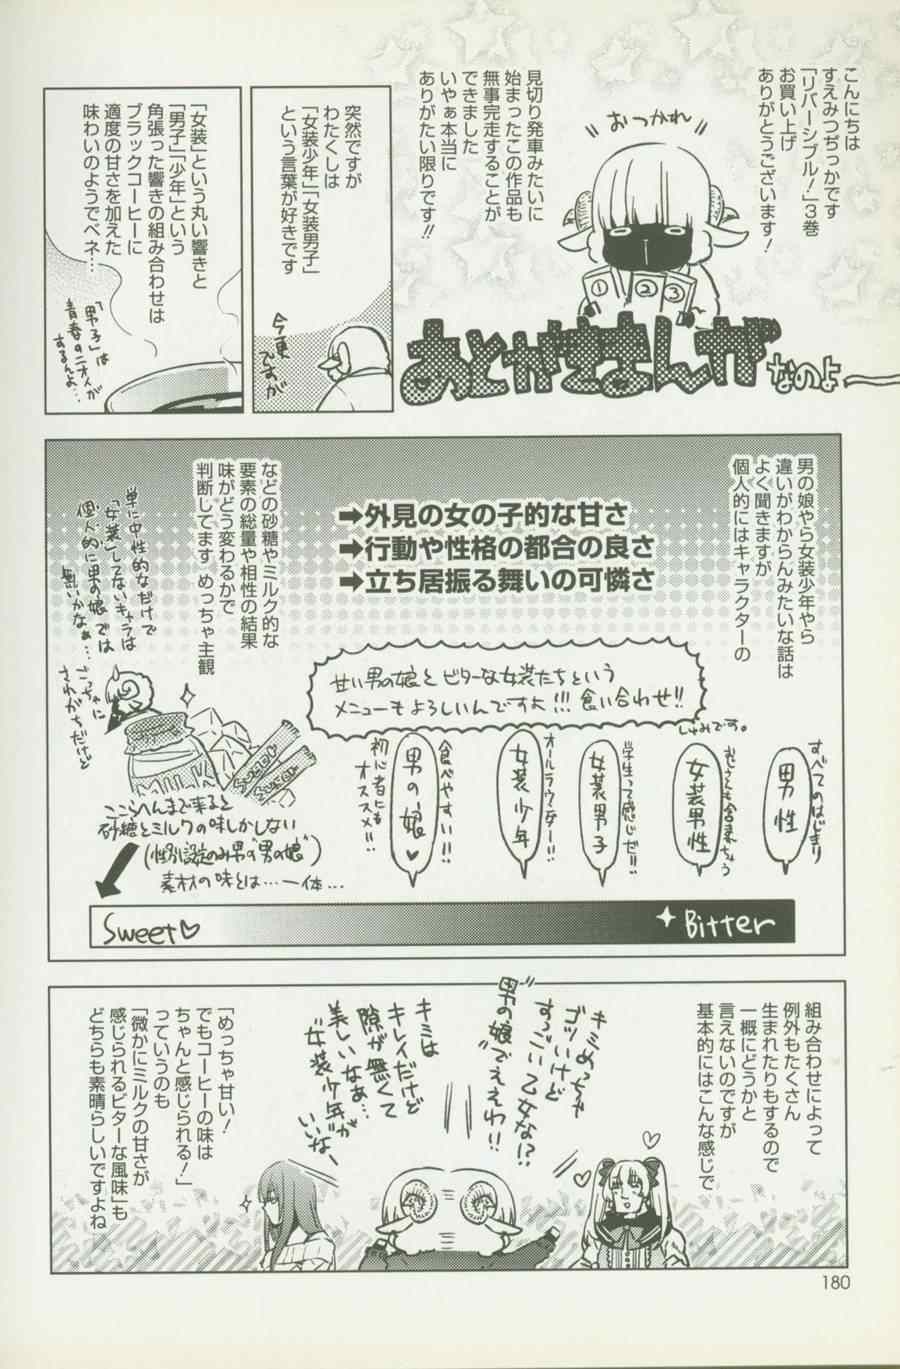 こんにちは
すえみつぢっかです
「リバーシブル!」3巻
お買い上げ
ありがとうございます!
見切り発車みたいに
始まったこの作品も
無事完走することが
できました
いやぁ本当に
ありがたい限りです!!
おつかれ
①
②
③
あとがきまんが
なのよ
突然ですが
わたくしは
「女装少年」「女装男子」
という言葉が好きです
今更
ですが
「女装」という丸い響きと
「男子」「少年」という
角張った響きの組み合わせは
ブラックコーヒーに
適度の甘さを加えた
味わいのようでベネ…
「男子」は
青春のニオイが
するんよ…
男の娘やら女装少年やら
違いがわからんみたいな話は
よく聞きますが
個人的にはキャラクターの
➡外見の女の子的な甘さ
➡行動や性格の都合の良さ
➡立ち居振る舞いの可憐さ
などの砂糖やミルク的な
要素の総量や相性の結果
味がどう変わるかで
判断してます めっちゃ主観
単に中性的なだけで
「女装」してないキャラは
個人的に男の娘では
無いかなぁ…ごっちゃに
されがちだけど
甘い男の娘とビターな女装たちという
メニューもよろしいんですよ!!!食い合わせ!!
しゅみです。
すべてのはじまり
男性
女装男性
学生って感じだ!!
女装男子
オールラウンダー!!
女装少年
食べやすい!!
男の娘♥
初心者にも
オススメ!!
MILK
Sugar
Sugar
ここらへんまで来ると
砂糖とミルクの味しかしない
(性別設定のみ男の“男の娘”)
素材の味とは…一体…
Sweet♡
Bitter
組み合わせによって
例外もたくさん
生まれたりもするので
一概にどうかと
言えないのですが
基本的にはこんな感じで
キミめっちゃ
ゴツいけど
すっごい乙女な!?
“男の娘”でええわ!!
キミは
キレイだけど
隙が無くて
美しいなぁ…
“女装少年”が
いいな、
「めっちゃ甘い!
でもコーヒーの味は
ちゃんと感じられる!」
っていうのも
「微かにミルクの甘さが
感じられるビターな風味」も
どちらも素晴らしいですよね
180